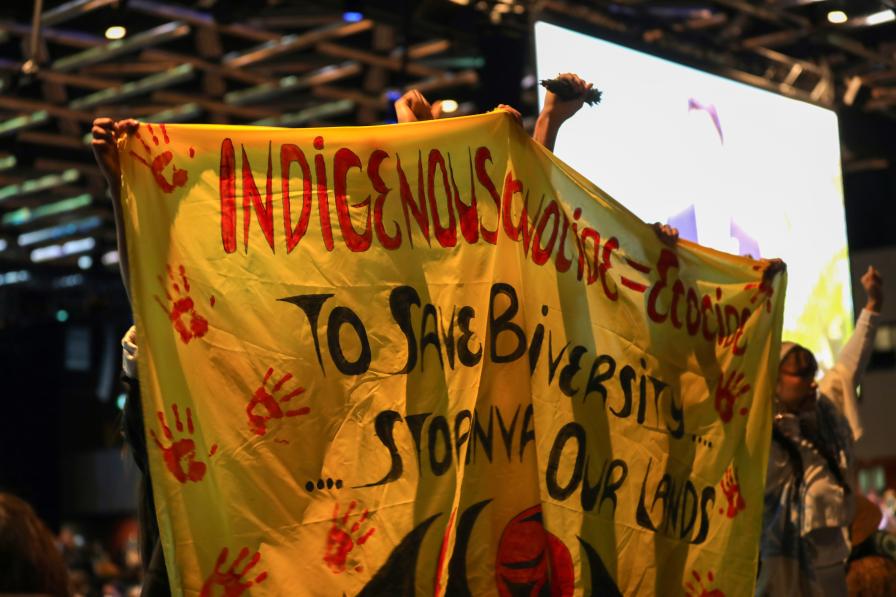 INDIGENOUS GENOCIDE = ECOCIDE
TO SAVE BiVERSITY....
....STOP OUR LANDS